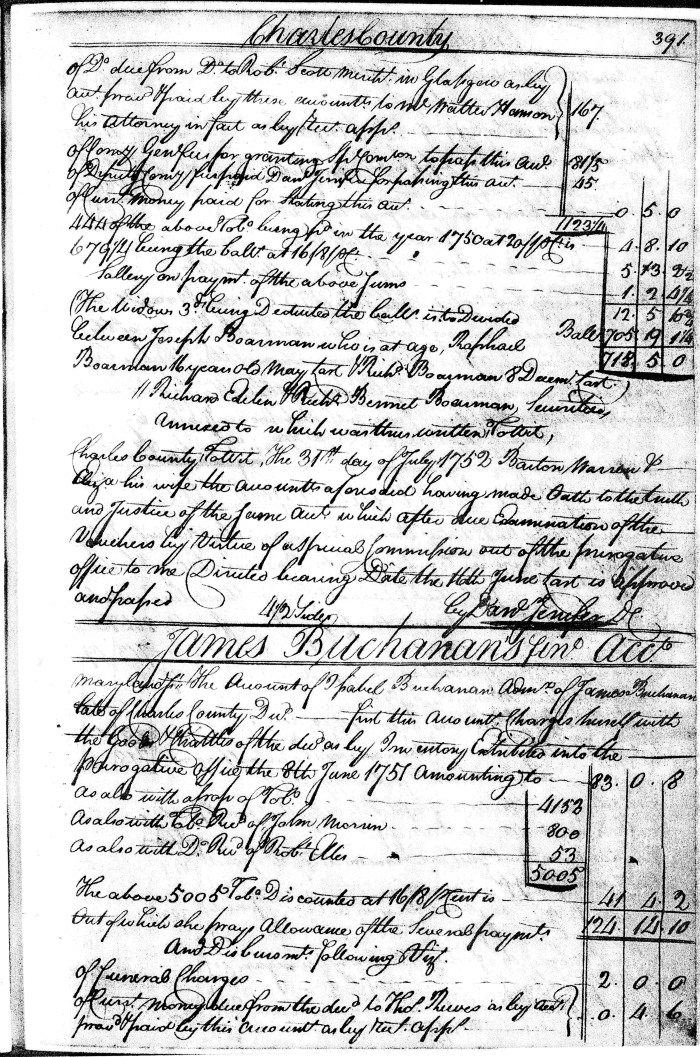 Charles County 391
of Do due from Do to Robt Scott Mercht in Glasgow as by
acct provd & paid by these accounts to Mr Walter Hanson } 167.
his Attorney in fact as by Rect appr
of Comry Genl fees for granting Spl Comion to pass this acct 81/5
of Deputy Comry fees paid Danl Jenifer for passing this acct 45
of curr money paid for stating this acct 0. 5. 0
1123 1/4
444 of the above Tobo being pd in the year 1750 at 20/ pCt is 4. 8. 10
679 1/4 being the balle at 16/8 pCt 5. 13. 2 1/2
Sallery on paymt of the above Sums 1. 2. 4 1/2
12. 5. 10 3/4
(The Widows 3d being Deducted the balle is to Divided
between Joseph Boarman who is at age, Raphael Balle 705 19 1 1/4
Boarman 16 years old May last & Richd Boarman 8 Decemr last) 718. 5 0
Richard Edelin & Richd Bennet Boarman, Securities,
Annexed to which was thus written Towit,
Charles County Towit, The 31st day of July 1752 Barton Warren &
Eliza his wife the Accountts aforesaid having made Oath to the truth
and Justice of the Same Acct which after due Examination of the
Vouchers by Virtue of a Special Commission out of the prerogative
office to me Directed bearing Date the 11th June last is approved
and passed 4 1/2 Sides by Danl Jenifer DC
James Buchanan's fino Acco
Maryland ss. The Account of Isabel Buchanan Admx of James Buchanan
late of Charles County Decd first this Accountt Charges herself with
the Goods & Chattles of the decd as by Inventory Exhibited into the
Prerogative Office the 8th June 1751 Amounting to 83. 0. 8
As also with a Crop of Tobo 4152
As also with Tobo Recd of John Morren 800
As also with Do Recd of Robt Elles 53
5005
The above 5005 Tobo Discounted at 16/8 pCent is 41 4 2
Out of which she prays Allowance of the Several paymts 124. 14 10
And Disbursmts following Vizt
Of Funeral Charges 2. 0. 0
Of Currt money due from the decd to Thos Reeves as by acct } 0. 4. 6
provd & paid by this account as by Rect appr